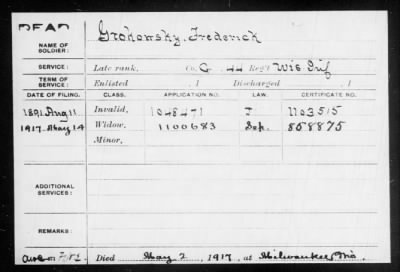 DEAD
NAME OF SOLDIER: Grokowsky, Frederick
SERVICE: Late rank, Co. G, 44 Reg't Wis. Inf
TERM OF SERVICE: Enlisted , 1 Discharged , 1
DATE OF FILING. CLASS. APPLICATION NO. LAW. CERTIFICATE NO.
1891 Aug 11 Invalid, 1048471 J 1103515
1917. May 14 Widow, 1100683 Sep. 858875
Minor,
ADDITIONAL SERVICES:
REMARKS:
Died May 2, 1917, at Milwaukee, Wis.